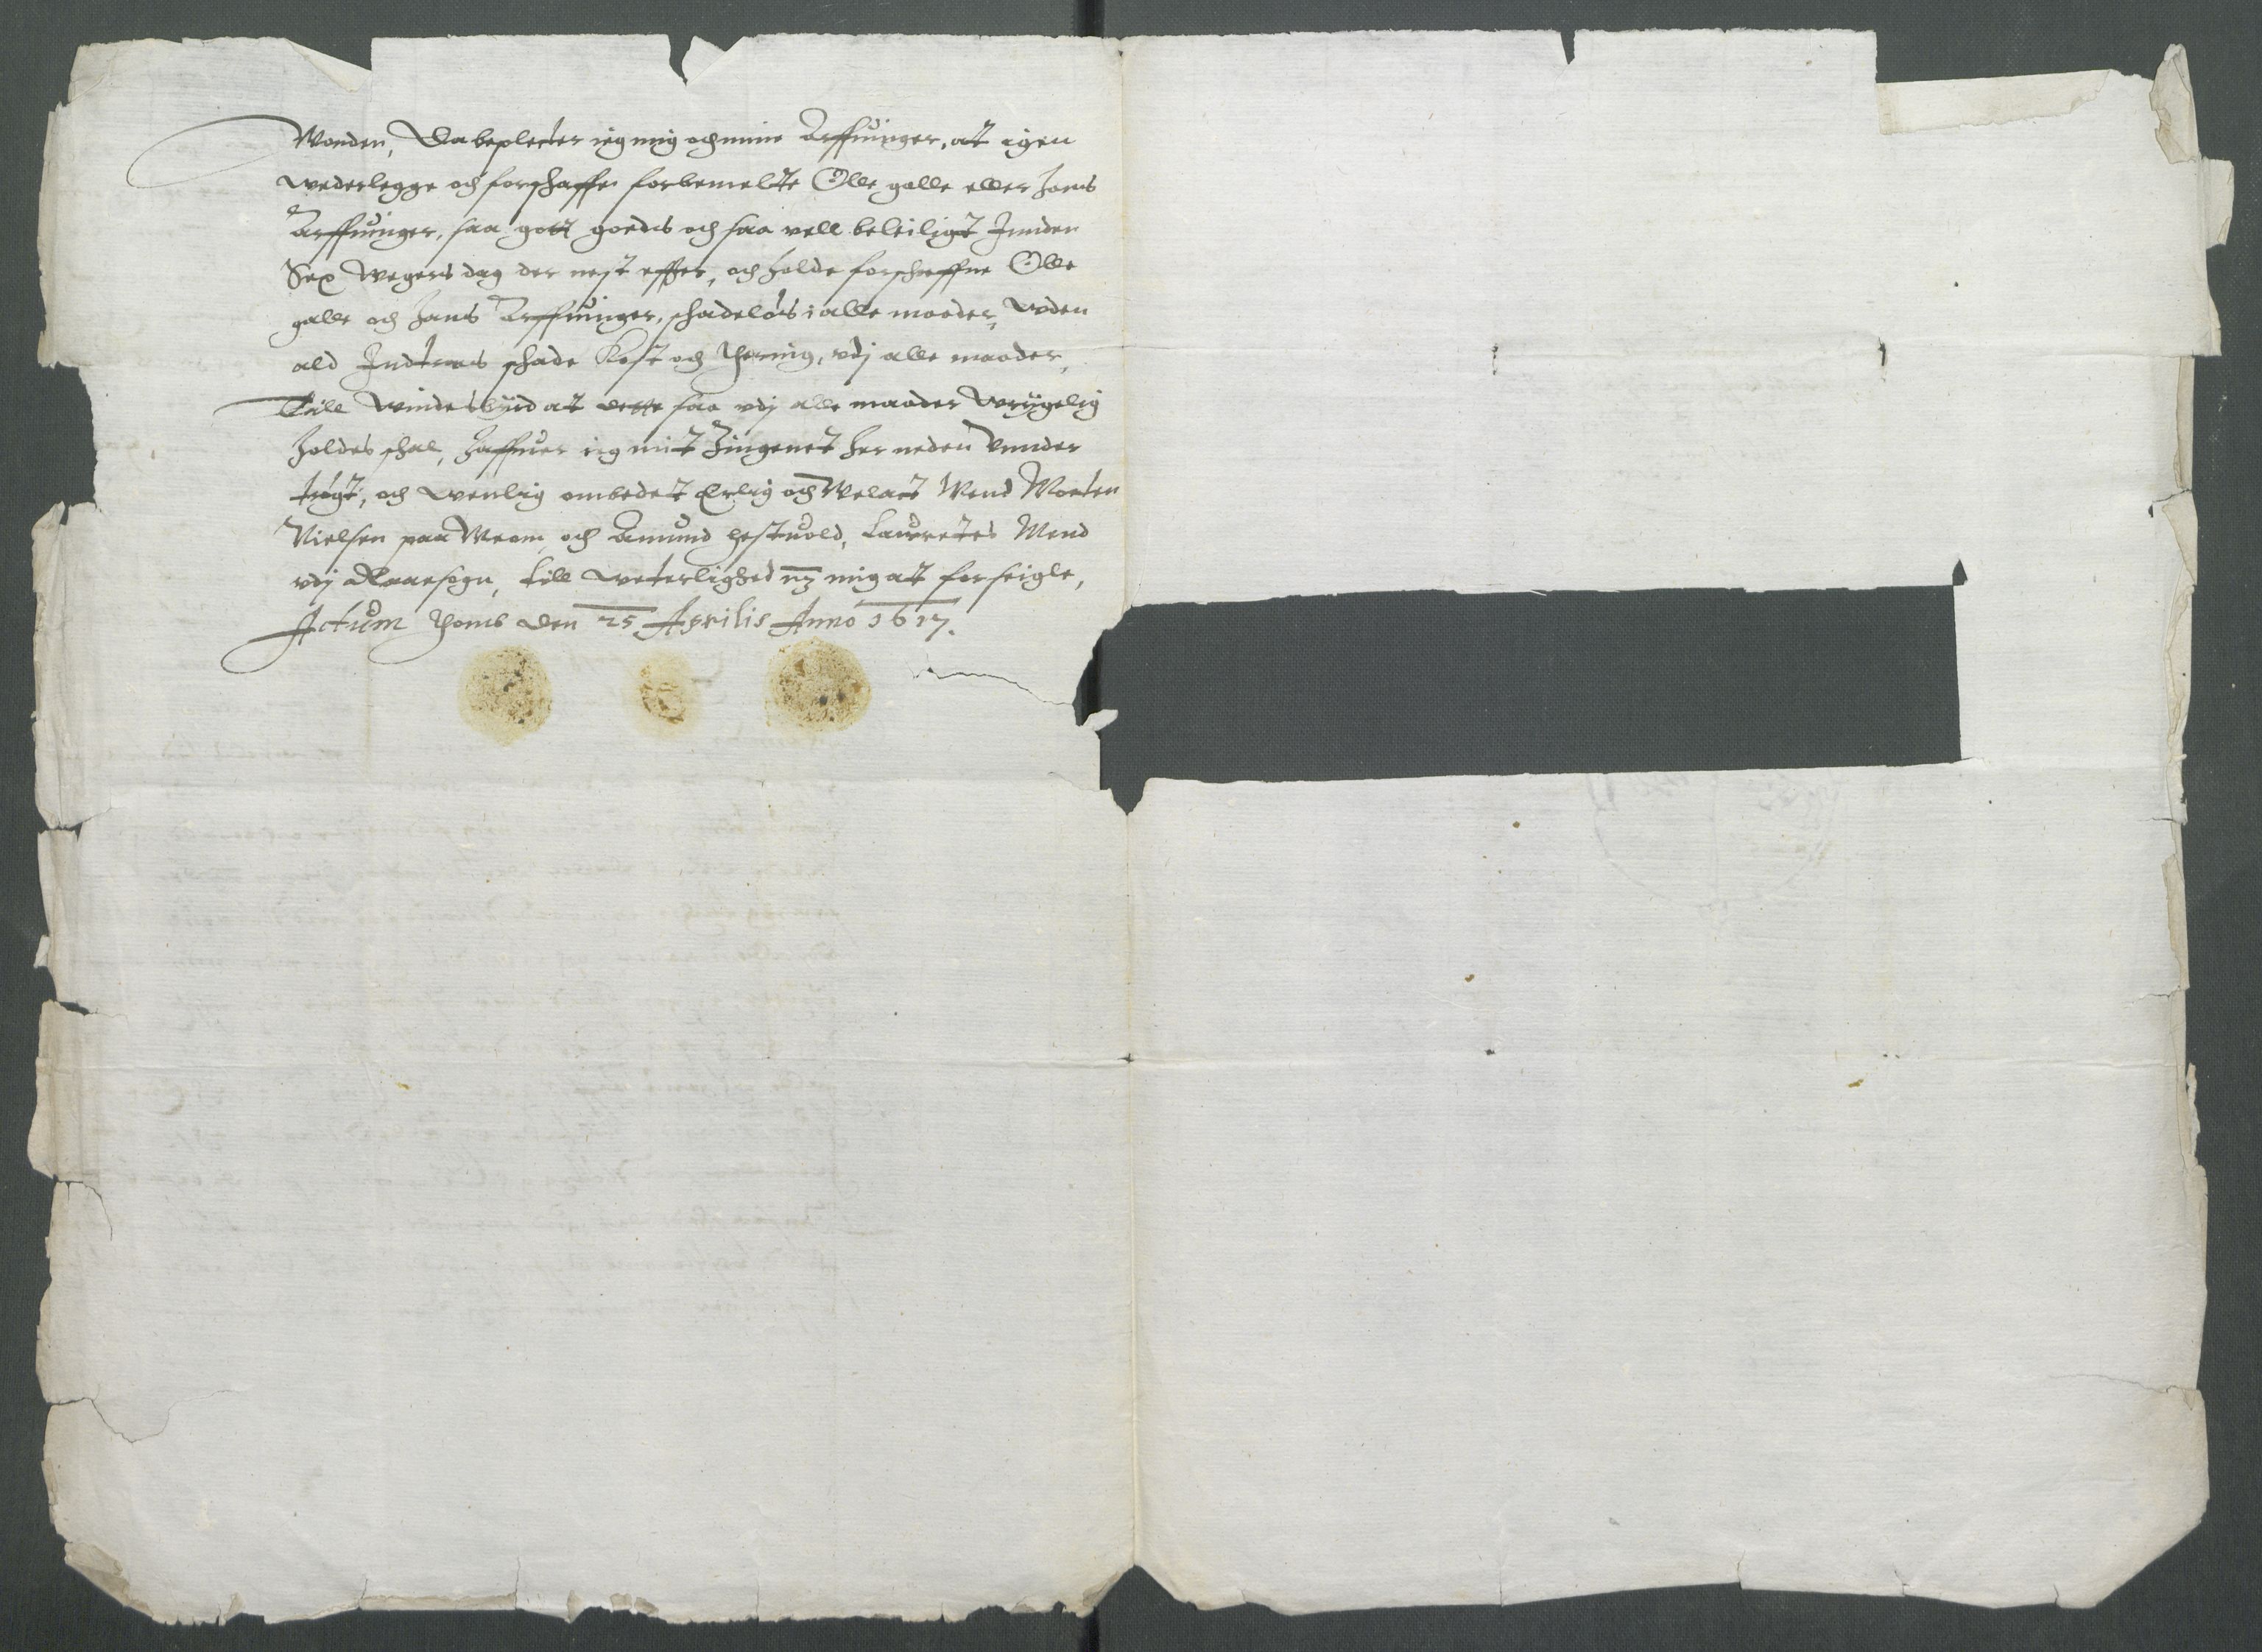 Wonden, Da beplecter ieg mig och mine Arffuinger, at igen
wederlegge och forschaffe forbemelte Olle galle eller hans
Arffuinger, saa gott goeds och saa vell beleiligt Innden
Sex wegers dag der nest effter, och holde forschreffne Olle
galle och hans Arffuinger, schadeløs i alle maader, Uden
ald Indtrous schade Kost och thering, vdj alle maader,
Till windesbyrd at dette saa vdj alle maader Wrygelig
holdes schal, haffuer ieg mit Zingenet her neden Unnder
trøgt, och wenlig ombedet Erlig och Welact Mend Morten
Nielsen paa Meom, och Amund hestuold, Laurettes Mend
vdj sogn, till weterlighed mz mig at forseigle,
Actum den 25 Aprilis Anno 1617.